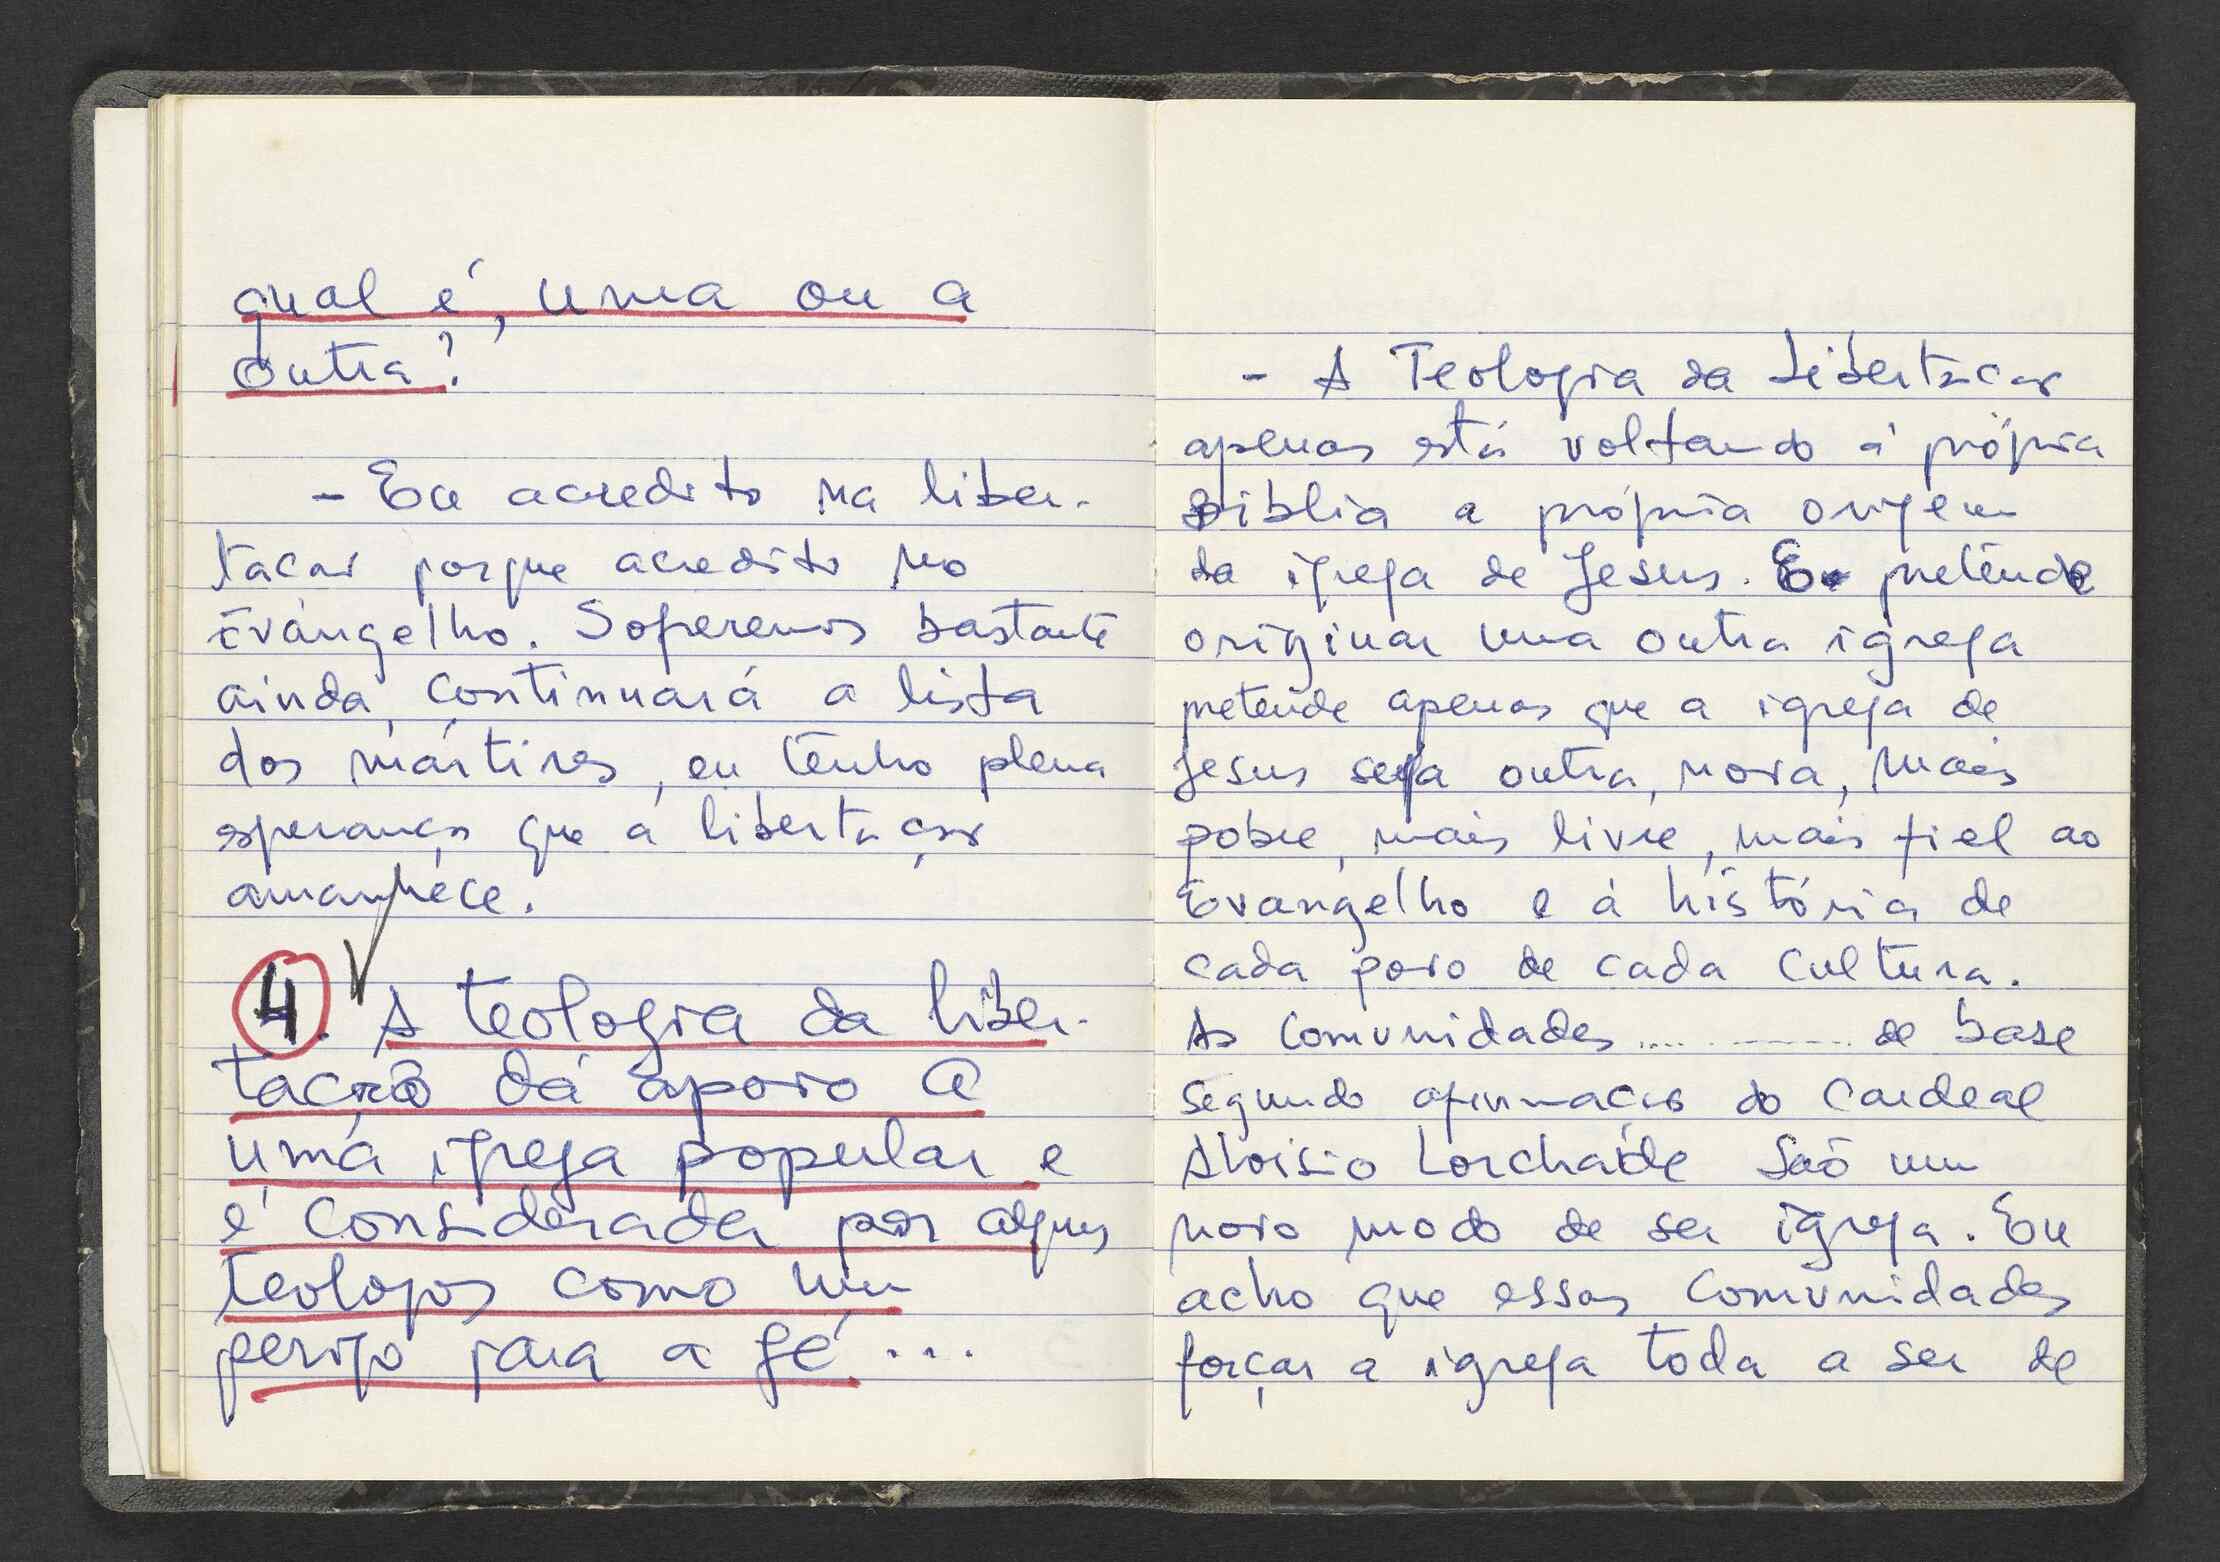 qual é, uma ou a
outra?
- Eu acredito na liber-
tacao porque acredito no
Evangelho. Soferemos bastante
ainda, continuará a lista
dos mártires, eu tenho plena
esperança que a libertaçao
amanhece.
4. A teologia da liber-
tação dá apoio a
uma igreja popular e
é considerada por algums
teologos como um
perigo para a fé...
- A Teologia da Libertacao
apenas está voltando á própria
Biblia a própria origem
da igreja de Jesus. E pretende
originar uma outra igreja
pretende apenas que a igreja de
Jesus seja outra, nova, mais
pobre, mais livre, mais fiel ao
Evangelho e á história de
cada povo de cada cultura.
As Comunidades ............ de base
segundo afirmaçao do Cardeal
Aloisio Lorchaide Saõ um
novo modo de ser igreja. Eu
acho que essas Comunidades
forçar a igreja toda a ser de